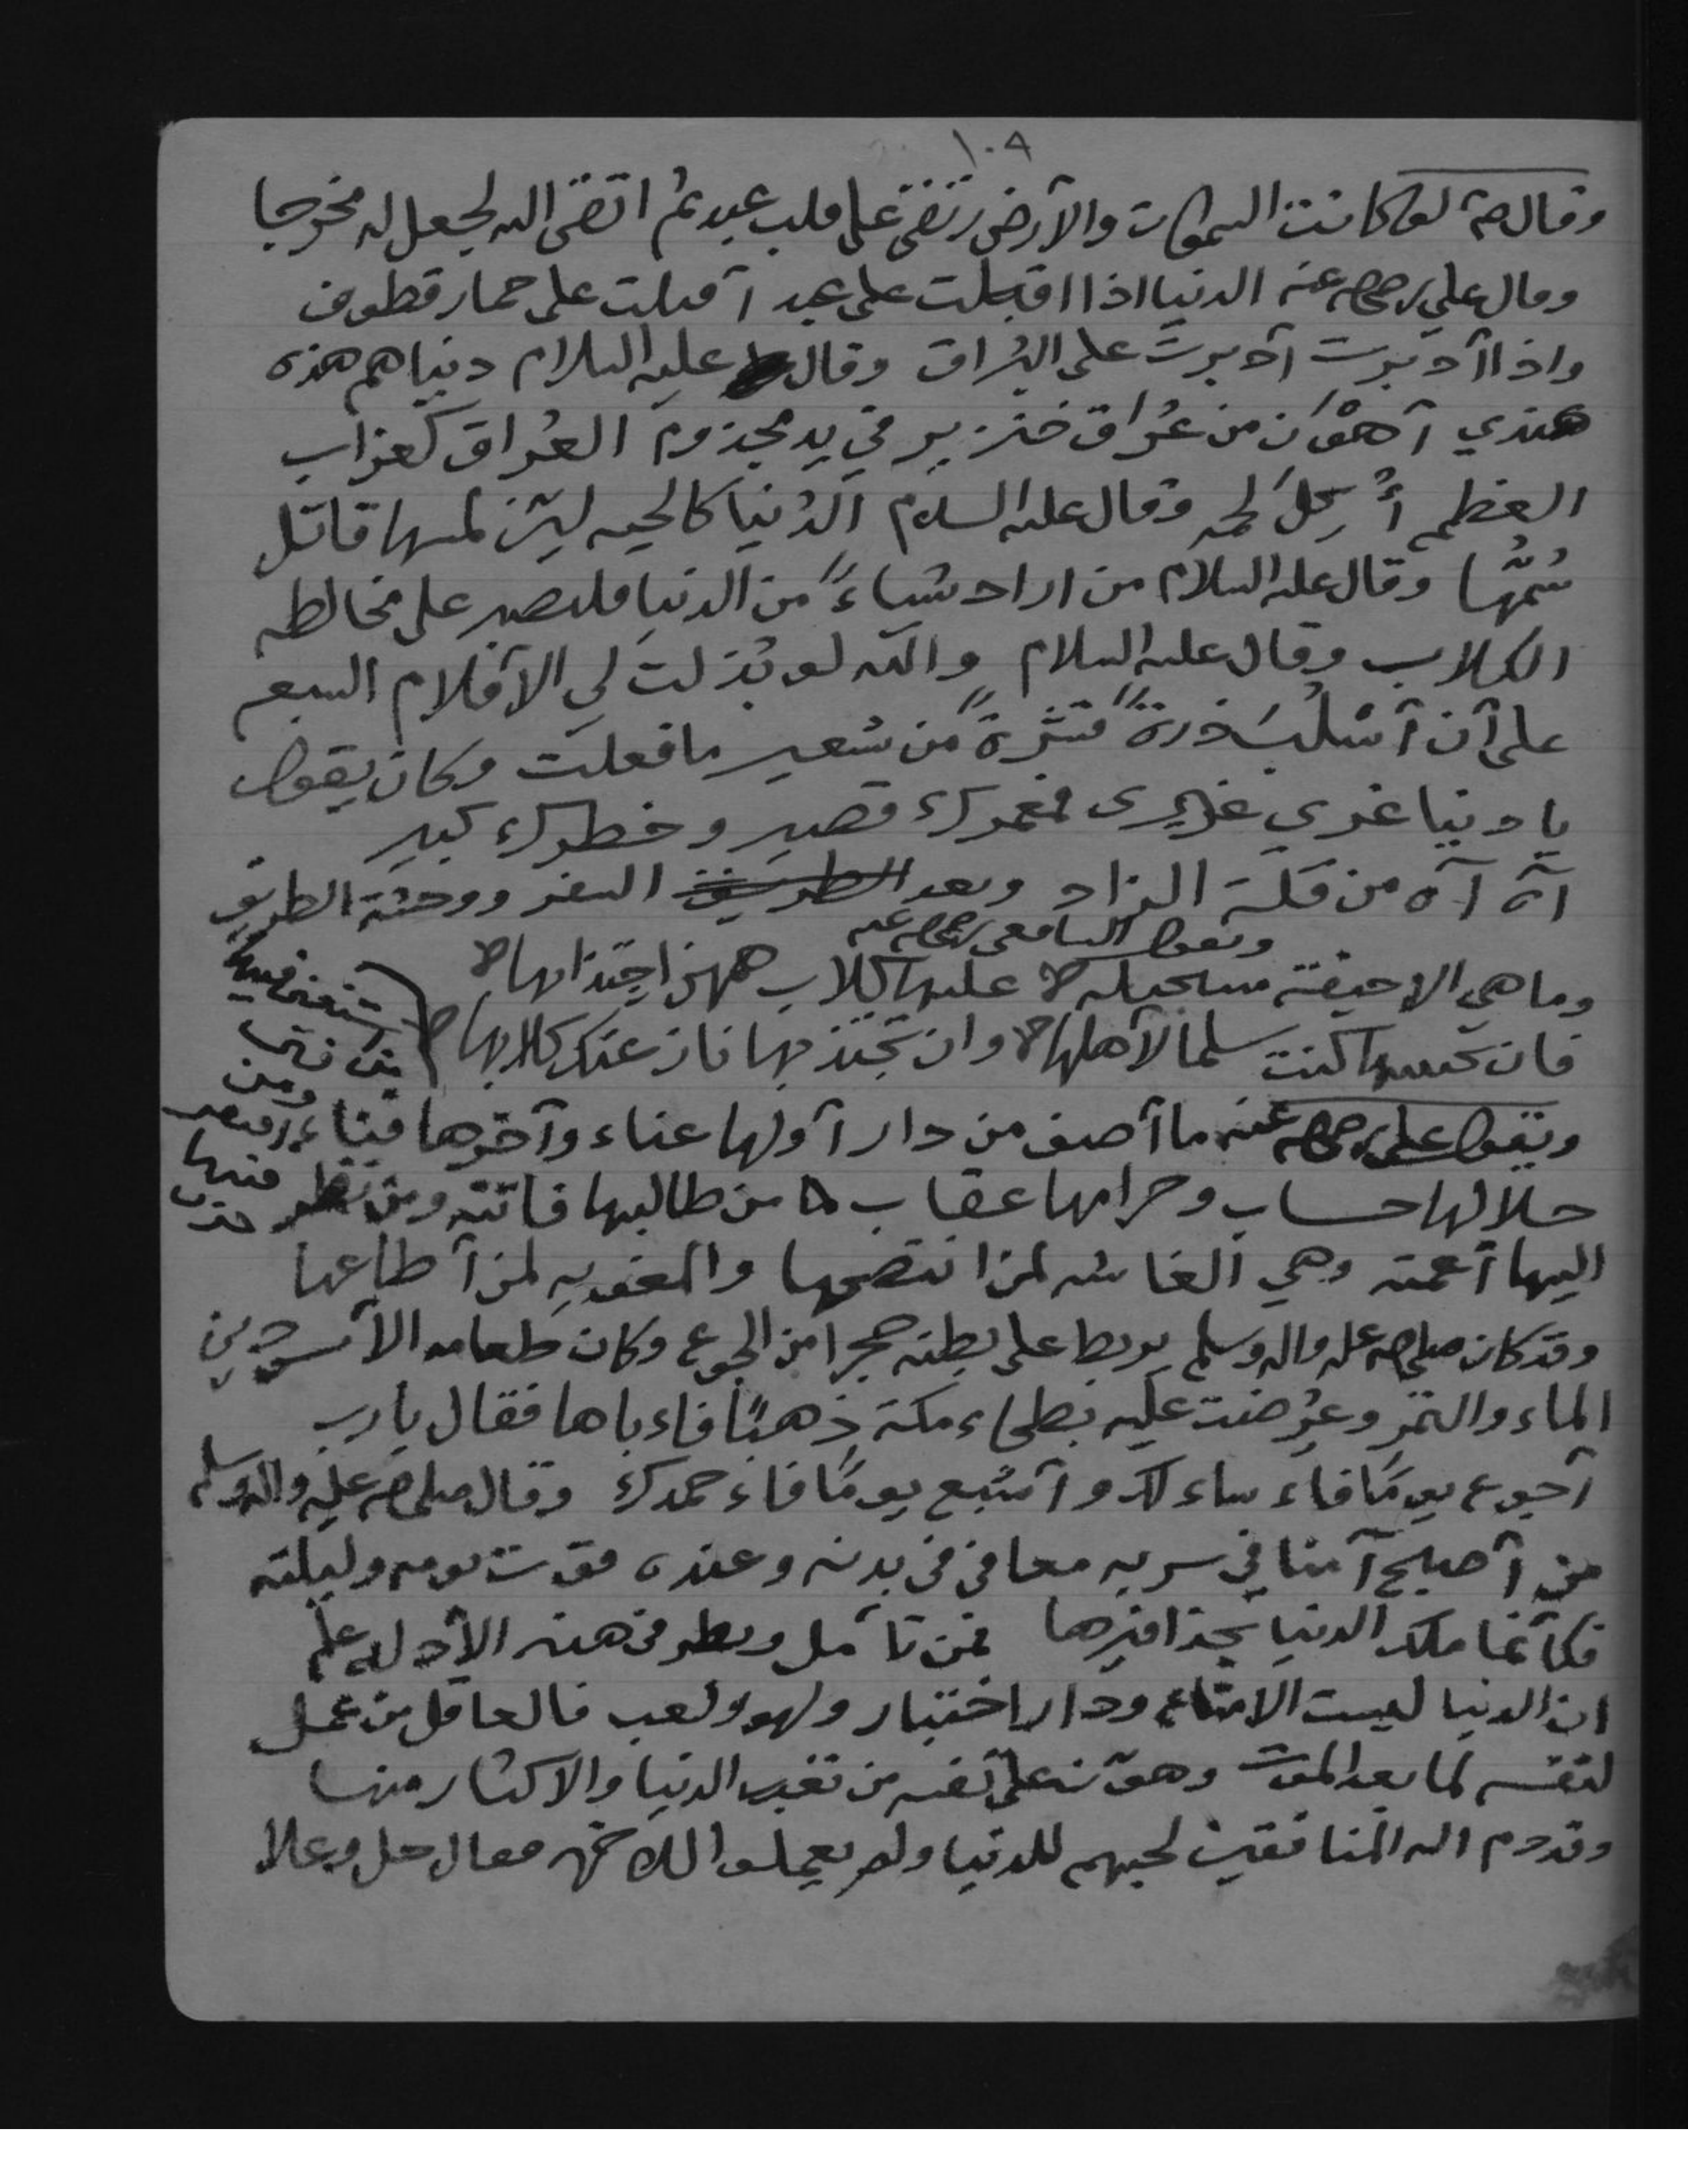 ١٠٨
وقال صم لو كانت السموات والأرض رتقى على قلب عبد ثم اتقى الله لجعل له مخرجا
وقال علي رضي الله عنه الدنيا اذا اقبلت على عبد أقبلت على حمار قطوف
واذا أدبرت أدبرت على البُراق وقال عليه السلام دنياهم هذه
عندي أهوَن من عُراق خنزير في يد مجذوم العُراق كغراب
العظم أُكِلَ لحمه وقال عليه السلام الدُنيا كالحيه ليّن لمسها قاتل
سُمُّها وقال عليه السلام من اراد شياءً من الدنيا فليصبر على مخالطه
الكلاب وقال عليه السلام والله لو بُذلت لي الأقلام السبعه
على أن أسْلُبَ ذرةً قشرةً من شعير ما فعلت وكان يقول
يا دنيا غري غيري فعمرك قصير وخطرك كبير
آه آه من قلة الزاد وبعد الطريق السفر ووحشة الطريق
ويقول الشافعي رضي الله عنه
وما هي الا جيفة مستحيله ۞ عليها كلاب همهن اجتذابها ۞
فان تجتنبها كنت سلما لأهلها ۞ وان تجتذبها نازعتك كلابها ۞
ويقول علي رضي الله عنه ما أصف من دار أولها عناء وآخرها فناء
من استغنى فيها
فتن
ومن افتقر
فيها
حزن
حلالها حساب وحرامها عقاب من طالبها فاتته ومن نظر
اليها أعمته وهي الغاشه لمن انتصحها والمغويه لمن أطاعها
وقد كان صلى الله عليه واله وسلم يربط على بطنه حجرا من الجوع وكان طعامه الأسودين
الماء والتمر وعُرضت عليه بطحاء مكة ذهبًا فاءباها فقال يا رب
أجوع يومًا فاء ساءلك وأشبع يومًا فاء حمدك وقال صلى الله عليه واله وسلم
من أصبح آمنا في سربه معافى في بدنه وعنده قوت يومه وليلته
فكأنما ملك الدنيا بحذافيرها فمن تأمل ونظر في هذه الأدله علم
ان الدنيا ليست الا متاع ودار اختبار ولهو ولعب فالعاقل من عمل
لنفسه لما بعد الموت وهوّن على نفسه من تعب الدنيا والاكثار منها
وقد ذم الله المنافقين لحبهم للدنيا ولم يعملوا للاخره فقال جل وعلا